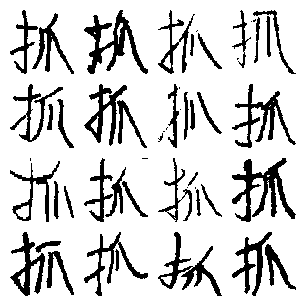 抓抓抓抓
抓抓抓抓
抓抓抓抓
抓抓抓抓